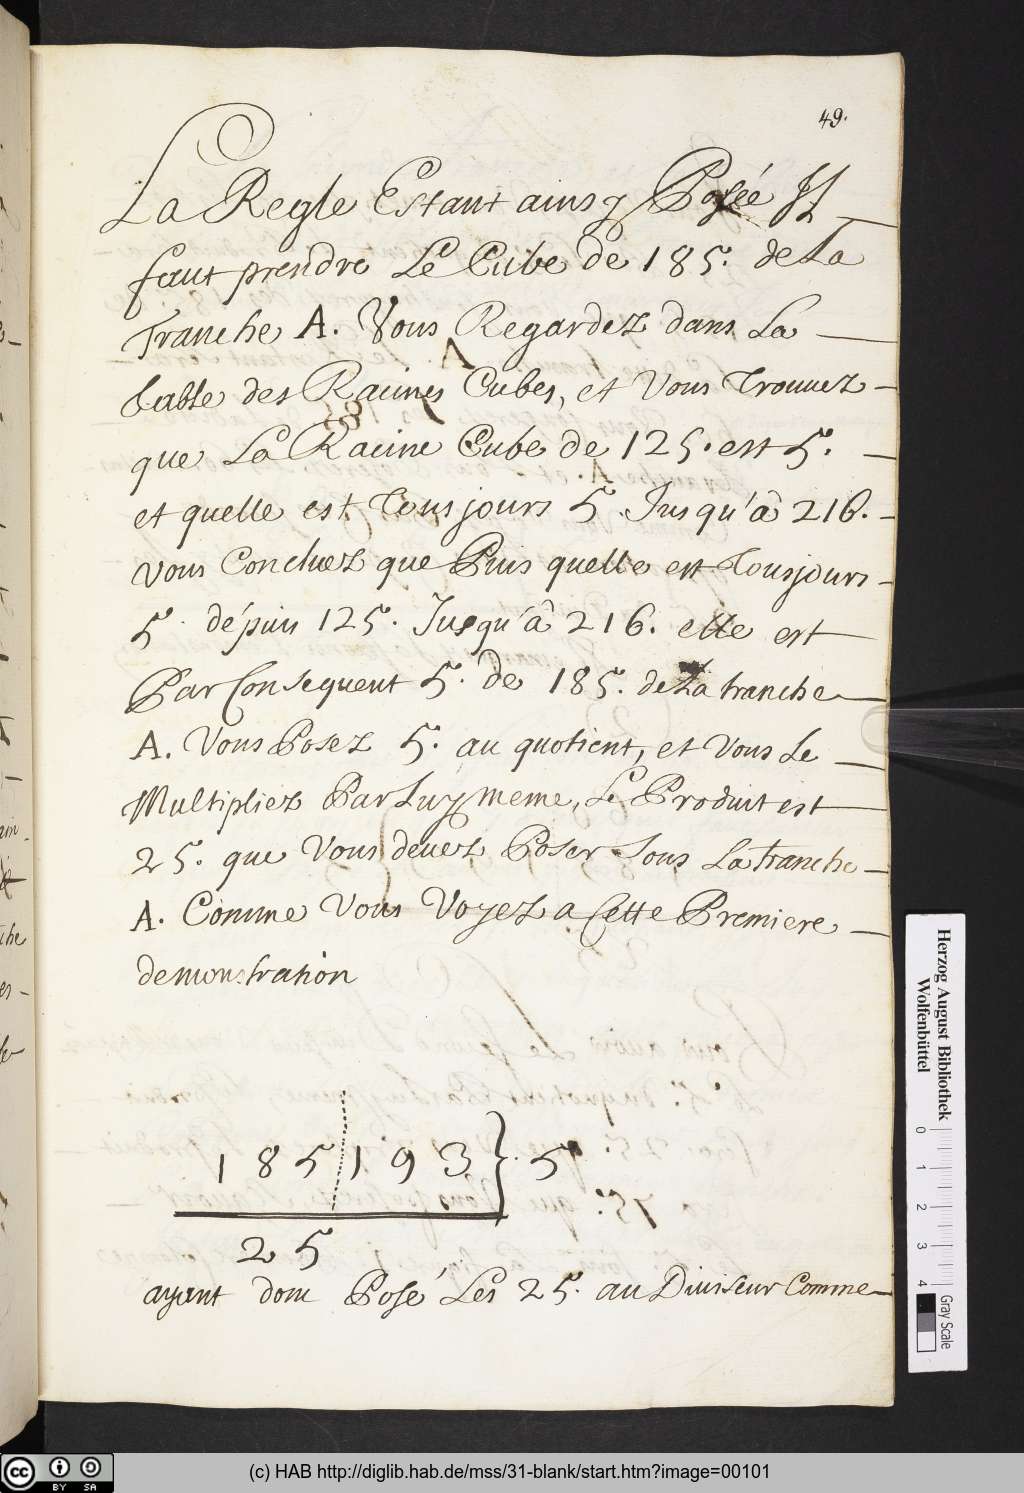 49.
La Regle Estant ainsy Posée Il
faut prendre Le Cube de 185. de La
Tranche A. Vous Regardez dans La
table des Racines Cubes, et Vous Trouuez
que La Racine Cube de 125. est 5.
et quelle est Tousjours 5 Jusqu'â 216.
vous Concluez que Puis quelle est Tousjours
5. dépuis 125. Jusqu'â 216. elle est
Par Consequent 5. de 185. de La tranche
A. Vous Posez 5. au quotient, et Vous Le
Multipliez Par Luy meme, Le Produit est
25. que Vous deuez Poser Sous La tranche
A. Comme Vous Voyez a Cette Premiere
demonstration
185 193 } 5
25
ayant donc Posé Les 25. au Diuiseur Comme
Herzog August Bibliothek
Wolfenbüttel
0 1 2 3 4 Gray Scale
(c) HAB http://diglib.hab.de/mss/31-blank/start.htm?image=00101
cc BY SA